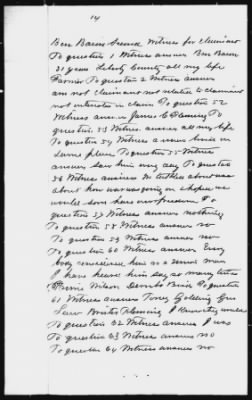 14
Ben Bacon Second Witness for claimant
To question 1 Witness answer Ben Bacon
31 years Liberty County all my life
Farmer To question 2 Witness answer
am not claimant not relative to claimant
not interested in claim To question 52
Witness answer James C To
question 53 Witness answer all my life
To question 54 Witness answer lived in
same place To question 55 Witness
answer saw him every day To question
56 Witness answers talked about war
about how war was going on hoped we
would soon have our freedom To
question 57 Witness answer nothing
To question 58 Witness answer no
To question 59 Witness answer no
To question 60 Witness answer Every
body considered him as a union man
I have heard him say so many times
Wilson To question
61 Witness answer Toney Golding
Law would
To question 62 Witness answer I was
To question 63 Witness answer no
To question 64 Witness answer no